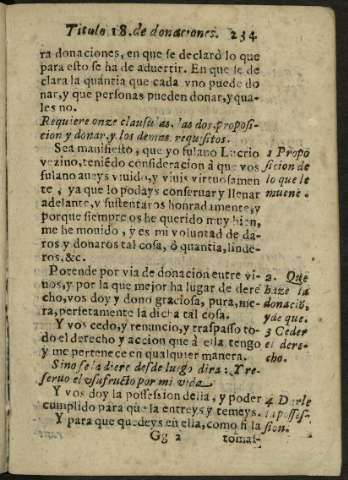 Titulo 18. de donaciones. 234
ra donaciones, en que se declarò lo que
para esto se ha de advertir. En que se de
clara la quantia que cada vno puede do
nar, y que personas pueden donar, y qua-
les no.
Requiere onze clausulas. las dos, proposi-
cion y donar, y los demas requisitos.
Sea manifiesto, que yo fulano Lucrio
vezino, teniẽdo consideracion à que vos
fulano aueys viuido, y viuis virtuosamen
te, ya que lo podays conseruar y lleuar
adelante, y sustentaros honradamente, y
porque siempre os he querido muy bien,
me he mouido, y es mi voluntad de da-
ros y donaros tal cosa, ò quantia, linde-
ros. &c.
1 Propo
sicion de
lo que le
mueue.
Por ende por via de donacion entre vi-
uos, y por la que mejor ha lugar de dere
cho, vos doy y dono graciosa, pura, me-
ra, perfetamente la dicha tal cosa.
2. Que
haze la
donaciõ,
y de que.
Y vos cedo, y renuncio, y traspasso to-
do el derecho y accion que à ella tengo
y me pertenece en qualquier manera.
3 Ceder
el dere-
cho.
Sino se la diere desde luego dira: Y re-
seruo el vsufructo por mi vida
Y vos doy la possession della, y poder
cumplido para que la entreys y temeys.
Y para que quedeys en ella, como si la
4 Darle
la posses-
sion.
Gg 2 tomas-